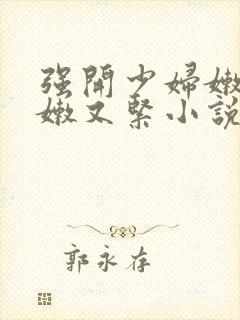 强開少婦嫩
嫩又緊小說
郭永存